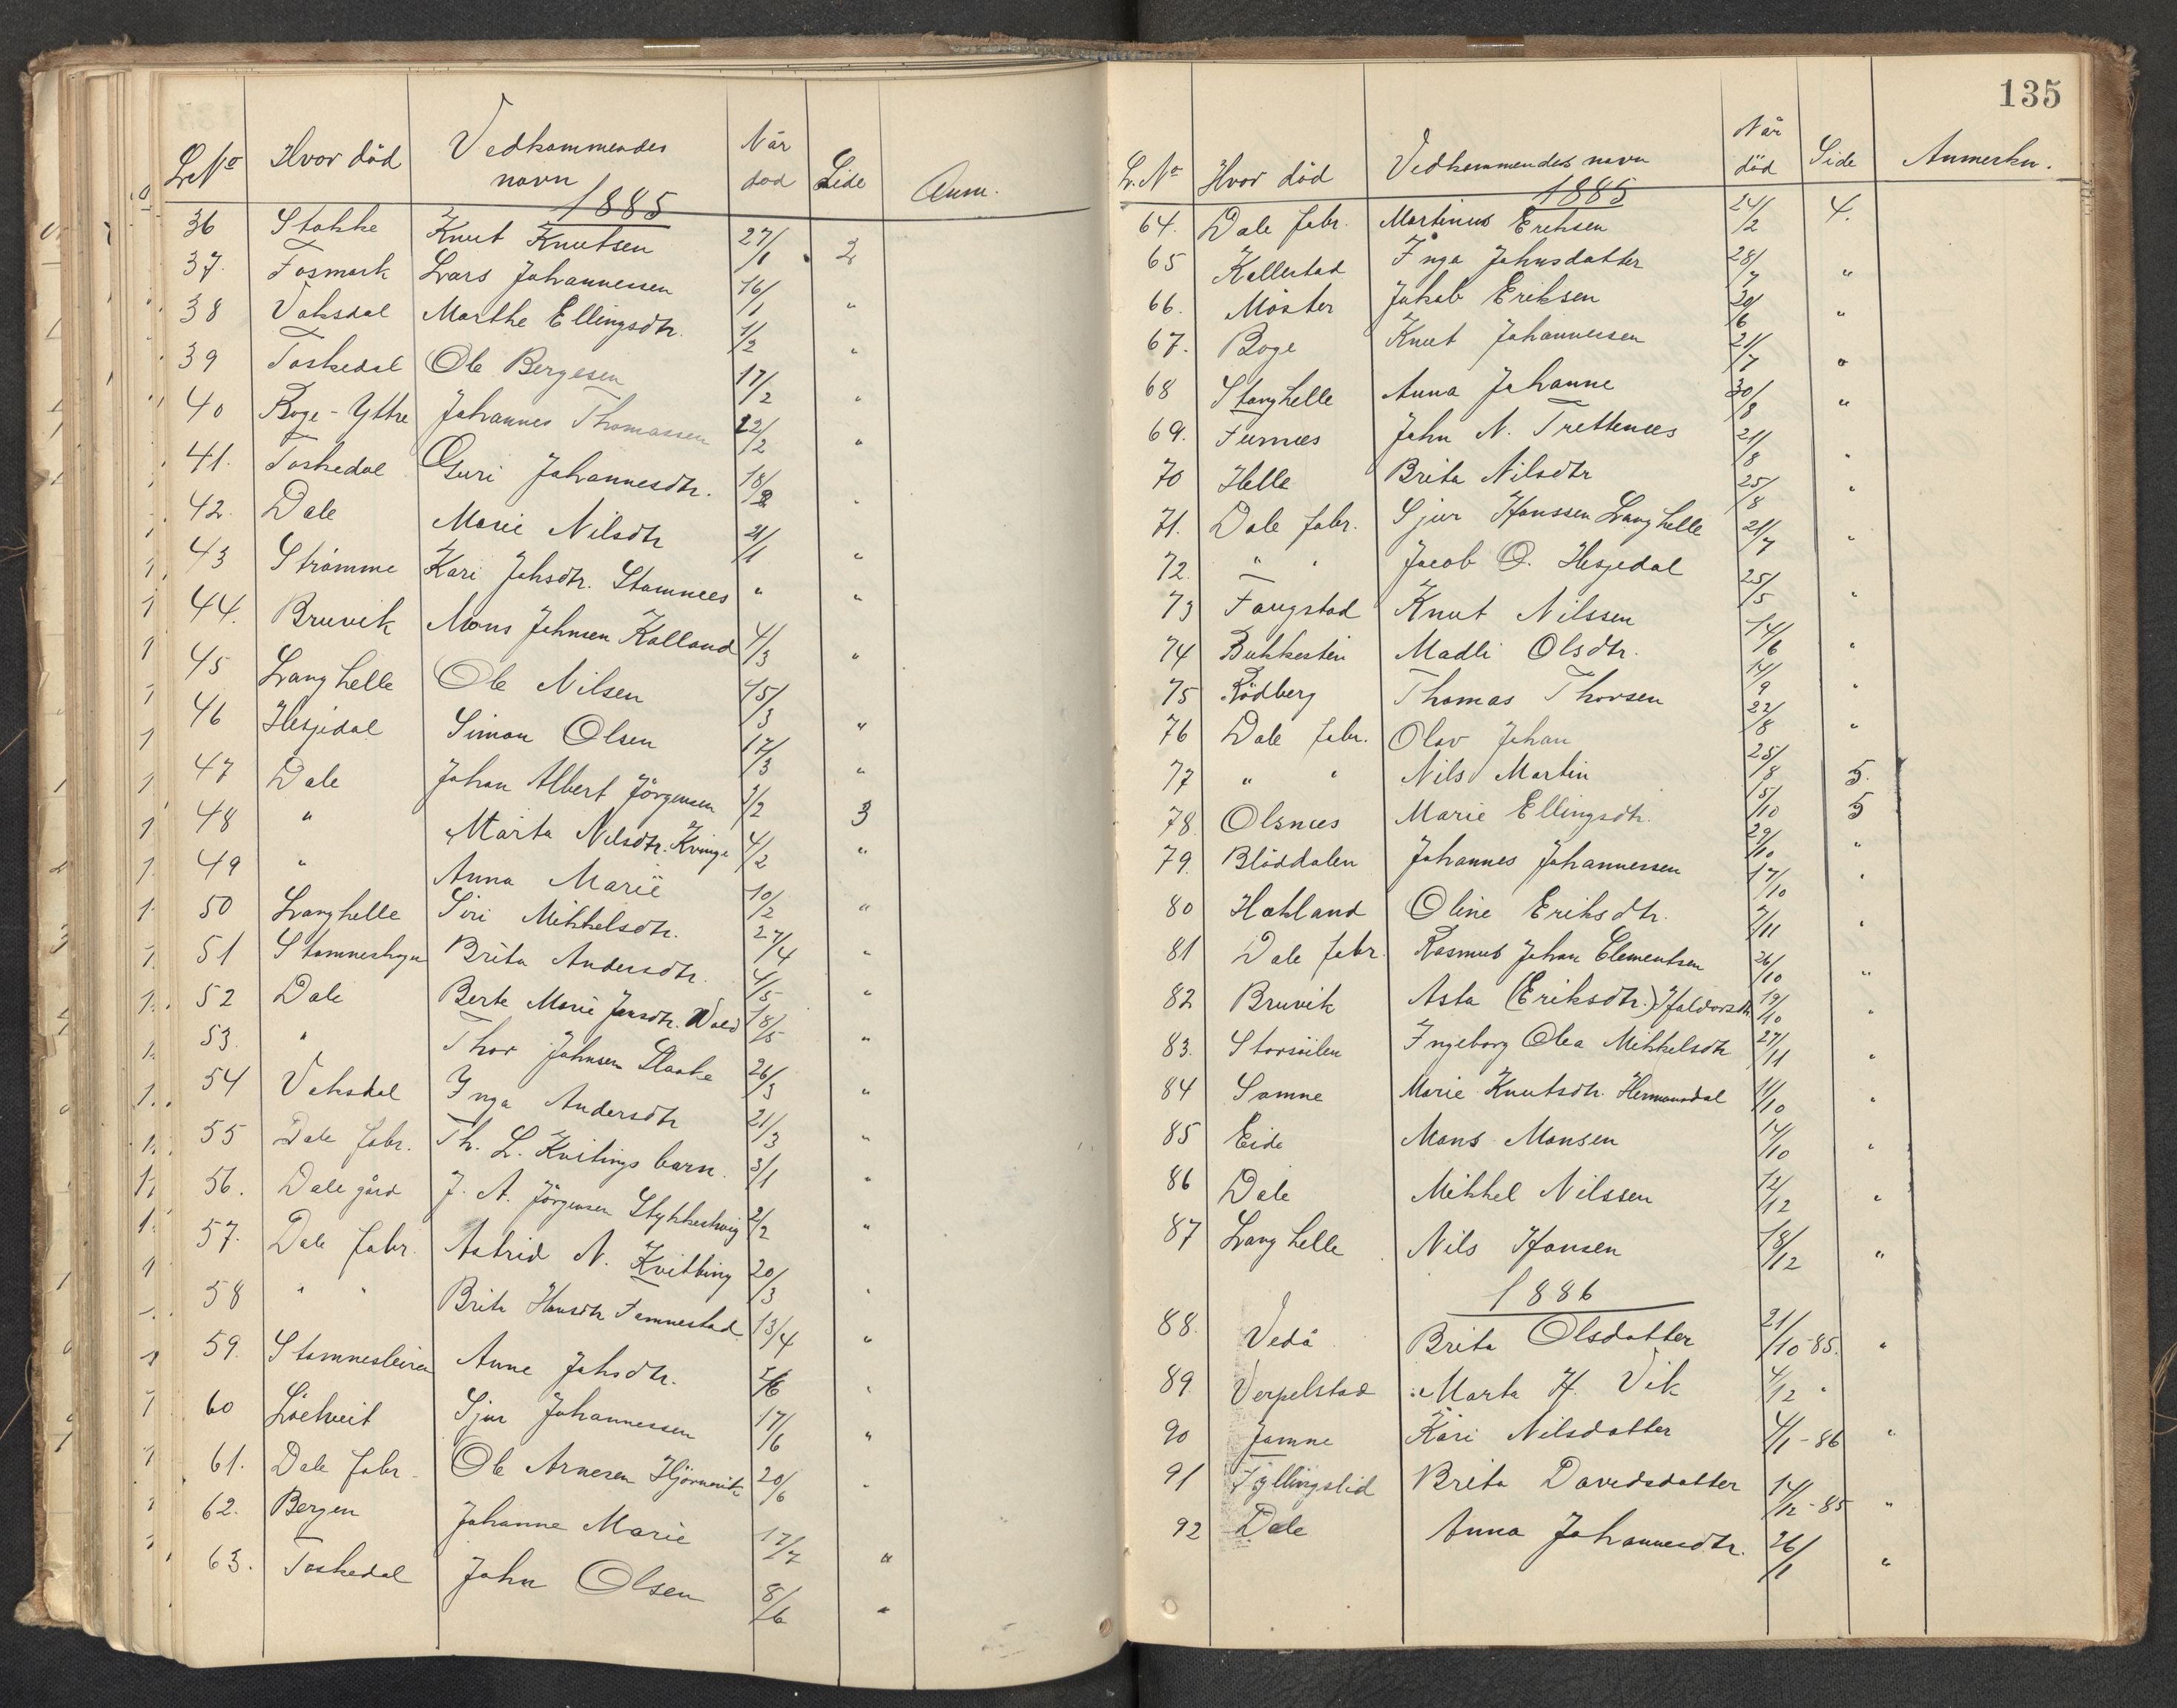 L. No Hvor död Vedkommendes navn Når död Side Anm.
1885
36 Stokke Knut Knutsen 27/1 2
37. Fosmark Lars Johannessen 16/1 "
38 Vaksdal Marthe Ellingsdtr. 1/2 "
39 Toskedal Ole Bergesen 17/2 "
40 Boge-Yttre Johannes Thomassen 22/2 "
41. Toskedal Guri Johannesdtr. 18/2 "
42. Dale Marie Nilsdtr 21/1 "
43 Strömme Kari Johsdtr. Stamnes " "
44. Bruvik Mons Johnsen Kalland 4/3 "
45 Langhelle Ole Nilsen 15/3 "
46 Hesjedal Simon Olsen 17/3 "
47 Dale Johan Albert Jörgensen 2/2 3
48 " Marta Nilsdtr. Kvinge 4/2 "
49 " Anna Marie 10/2 "
50 Langhelle Siri Mikkelsdtr. 27/4 "
51 Brita Andersdtr. 4/5 "
52 Dale Berte Marie Jansdtr. 18/5 "
53. " Thor Johnsen 26/3 "
54 Vaksdal Inga Andersdtr 21/3 "
55 Dale fabr. Th. L. Kvitings barn. 3/1 "
56. Dale gård J. A. Jörgensen 2/2 "
57. Dale fabr. Astrid N. Kvitting 20/3 "
58 " " Brita Hansdtr Famnestad 13/4 "
59. Stamnesleiren Anne Johsdtr. "
60 Sjur Johannessen 17/6 "
61. Dale fabr. Ole Arnesen Hjörnevik 20/6 "
62. Bergen Johanne Marie 17/7 "
63. Toskedal John Olsen 8/6 "
135
L. No Hvor död Vedkommendes navn Når död Side Anmerkn.
1885
64. Dale fabr. Martinus Eriksen 24/2 4.
65 Kallestad Inga Johnsdatter 28/7 "
66. Möster Jakob Eriksen 30/6 "
67. Boge Knut Johannessen 21/7 "
68 Stanghelle Anna Johanne 30/8 "
69. Furnæs John N. Trettenæs 21/8 "
70 Helle Brita Nilsdtr 25/8 "
71. Dale fabr. Sjur Hanssen Langhelle 21/7 "
72. " " Jacob O. Hesjedal 25/5 "
73 Fangstad Knut Nilssen 14/6 "
74 Bukkesten Madli Olsdtr. 14/9 "
75 Rödberg Thomas Thorsen 22/8 "
76 Dale fabr. Olav Johan 25/8
77 " " Nils Martin 15/10 5.
78. Olsnæs Marie Ellingsdtr. 29/10 5
79. Blöddalen Johannes Johannessen 17/10 "
80 Hokland Oline Eriksdtr. 7/11 "
81 Dale fabr. Rasmus Johan Clementsen 26/10 "
82 Bruvik Asta (Eriksdtr.) Haldorsdtr 19/10 "
83. Storsöilen Ingeborg Olea Mikkelsdtr 27/11 "
84 Samne Marie Knutsdtr. Hermansdal 11/10 "
85 Eide Mons Monsen 14/10 "
86 Dale Mikkel Nilssen 12/12 "
87 Langhelle Nils Hansen 18/12 "
1886
88. Vedå Brita Olsdatter 21/10-85. "
89. Verpelstad Marta H. Vik 4/12 "
90 Jamne Kari Nilsdatter 4/1-86 "
91 Fyllingslid Brita Davidsdatter 14/12-85 "
92 Dale Anna Johannesdtr. 26/1 "